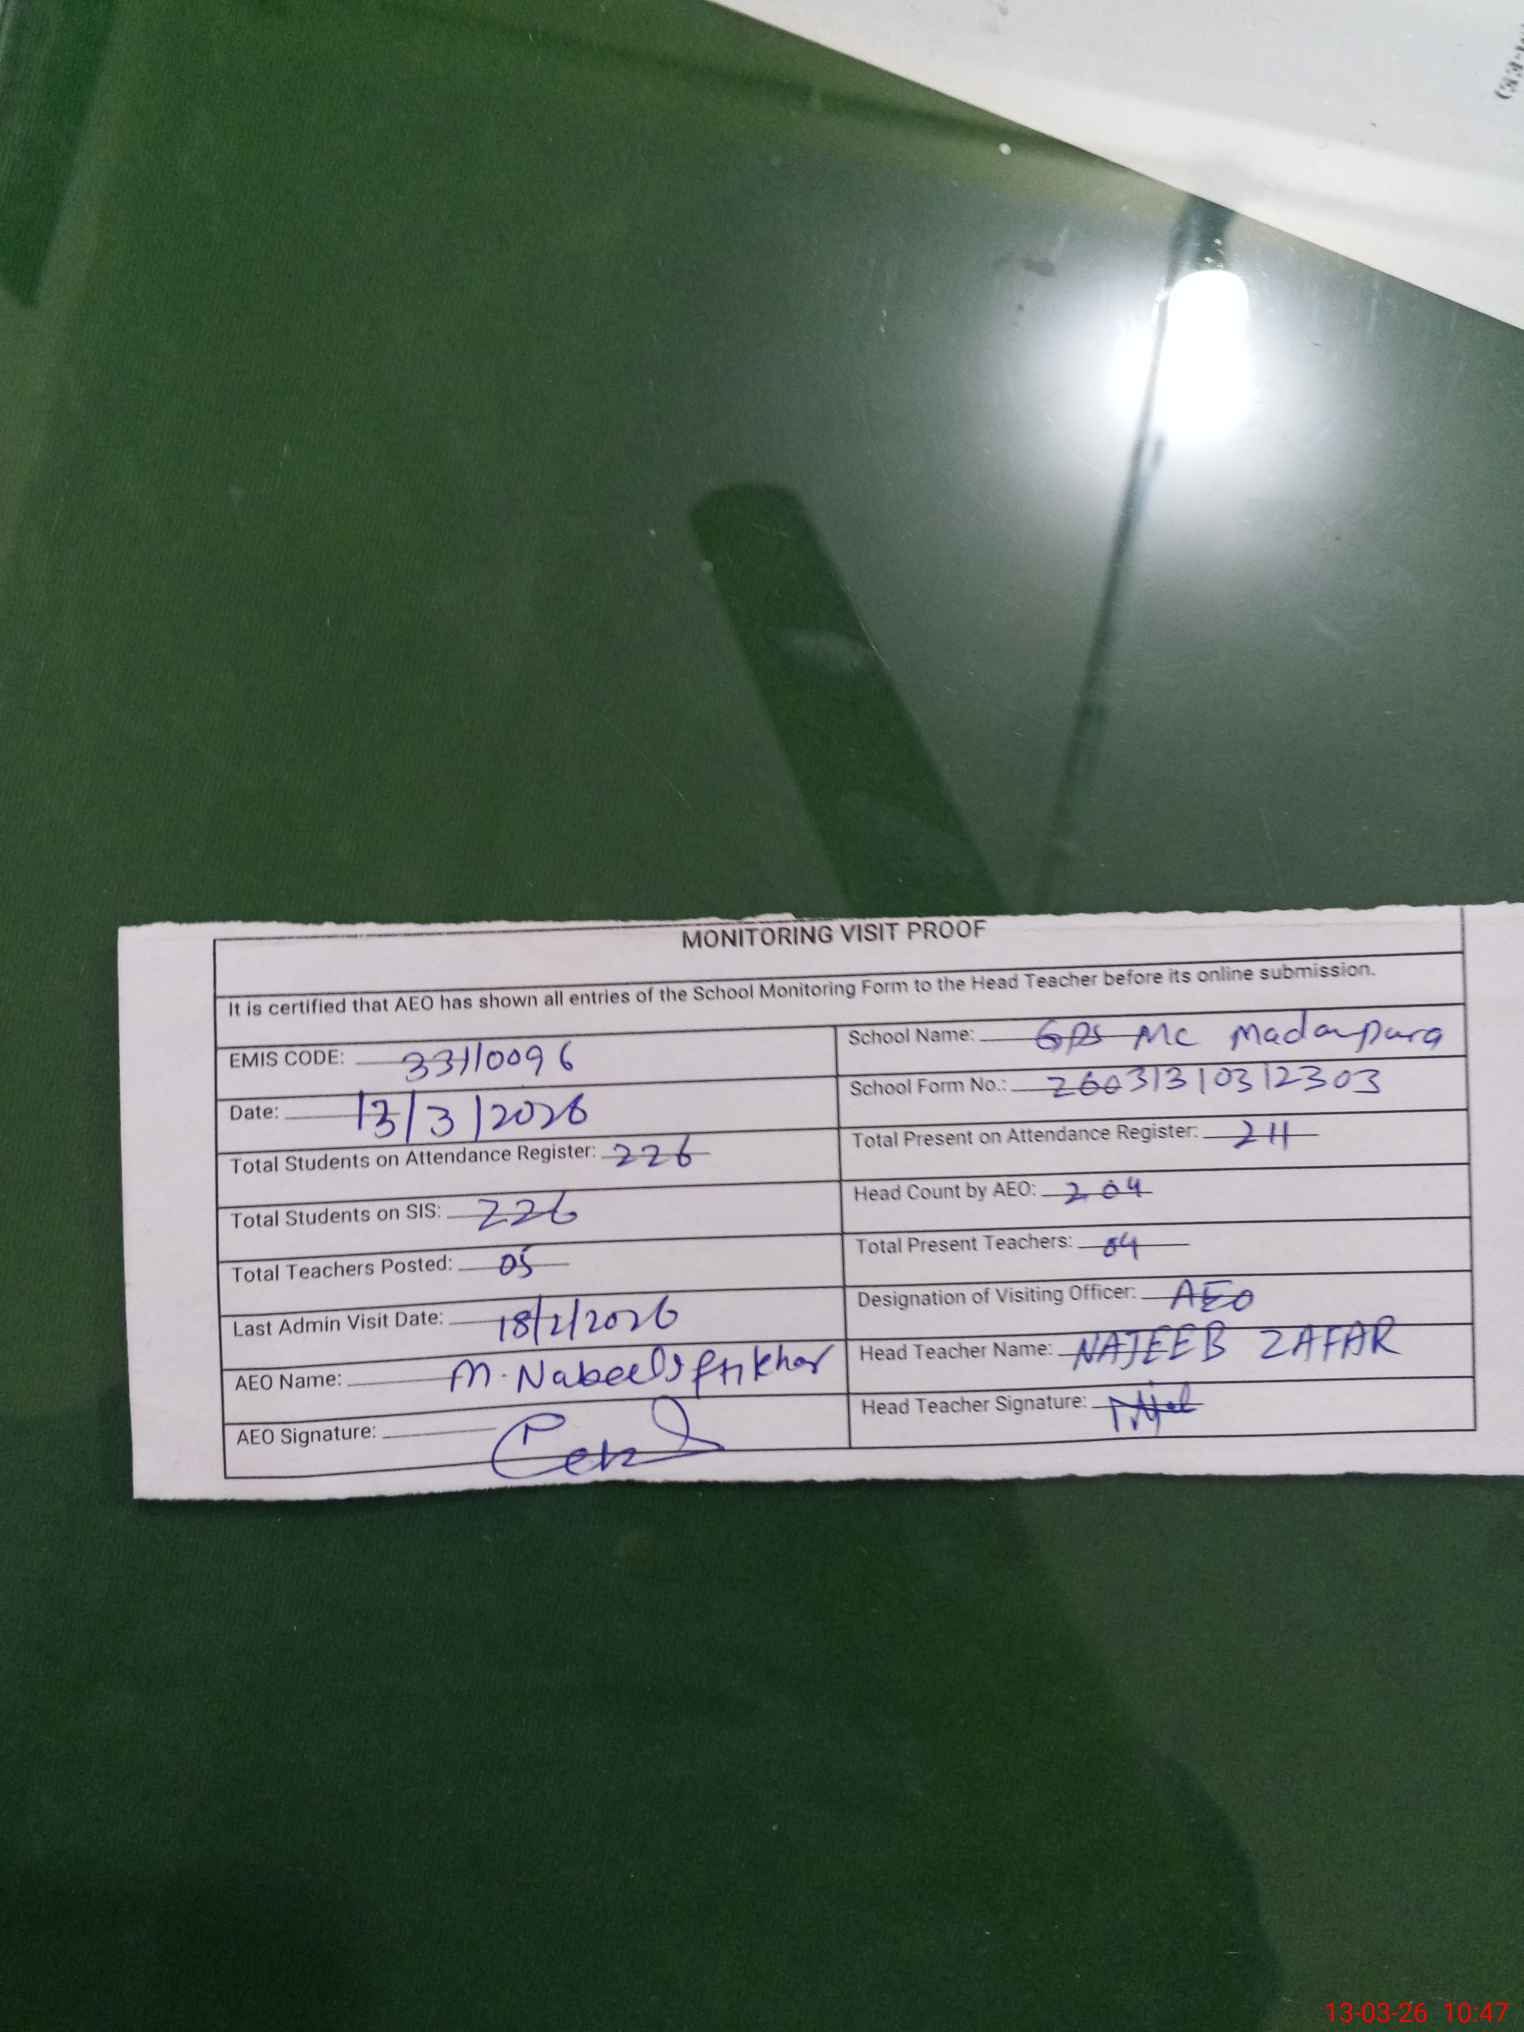 MONITORING VISIT PROOF
It is certified that AEO has shown all entries of the School Monitoring Form to the Head Teacher before its online submission.
EMIS CODE: 33110096
School Name: GPS MC Madanpura
Date: 13/3/2026
School Form No.: 26031310312303
Total Students on Attendance Register: 226
Total Present on Attendance Register: 211
Total Students on SIS: 226
Head Count by AEO: 204
Total Teachers Posted: 05
Total Present Teachers: 04
Last Admin Visit Date: 18/2/2026
Designation of Visiting Officer: AEO
AEO Name: M. Nabeel Iftikhar
Head Teacher Name: NAJEEB ZAFAR
AEO Signature:
Head Teacher Signature:
13-03-26 10:47